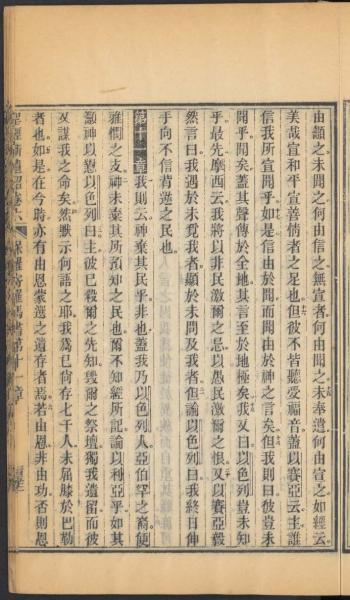 由顲之未聞之何由信之無宣者何由聞之未奉遣何由宣之如經云
美哉宣和平宣善情者之足也但彼不皆聽受福音蓋以賽亞云主誰
信我所宣聞乎如是信由於聞而聞由於神之言矣但我則曰彼豈未
聞乎聞矣蓋其聲傳於全地其言至於地極矣我又曰以色列豈未知
乎最先摩西云我將以非民激爾之忌以愚民激爾之恨又以賽亞毅
然言曰我遇於未覓我者顯於未問及我者但論以色列曰我終日伸
手向不信背逆之民也
第十一章我則云神棄其民乎非也蓋我乃以色列人亞伯罕之裔便
雅憫之支神未棄其所預知之民也爾不知經所記論以利亞乎如其
籲神以懟以色列曰主彼已殺爾之先知毀爾之祭壇獨我遺留而彼
又謀我之命矣然默示何語之耶我爲己尙存七千人未屈膝於巴勒
者也如是在今時亦有由恩蒙選之遺存者焉若由恩非由功否則恩